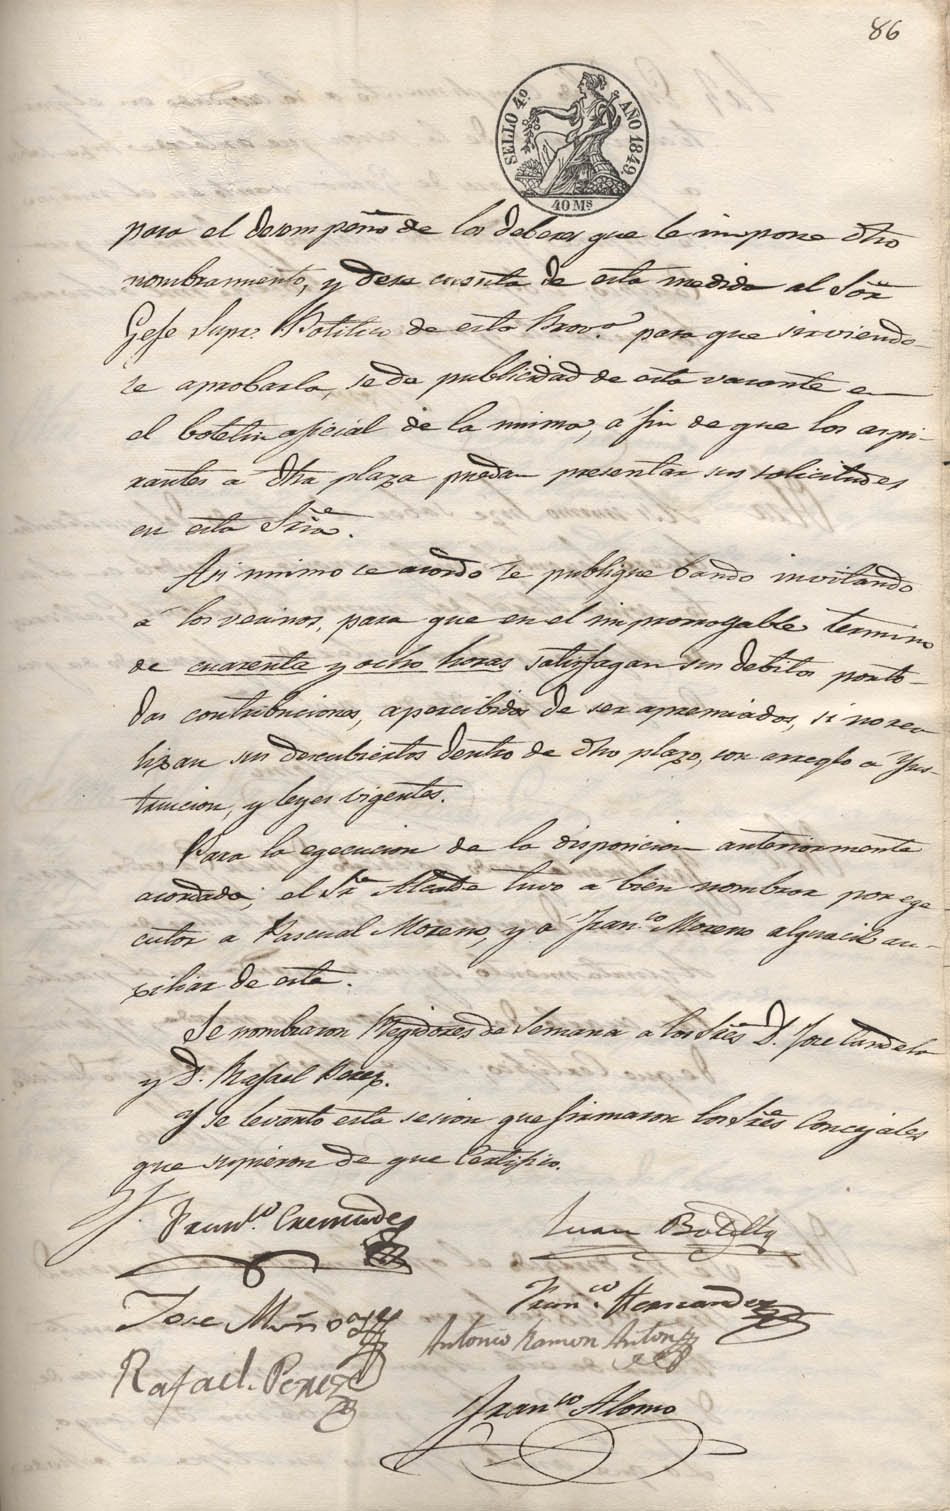 86
SELLO 4º AÑO 1849.
40 Ms
para el desempeño de los deberes que le impone dho
nombramiento, y dese cuenta de esta medida al Sor
Gefe Supr. Politico de esta Prova. para que sirviendo-
se aprobarla, se de publicidad de esta vacante en
el boletin oficial de la misma, a fin de que los aspi-
rantes a dha plaza puedan presentar sus solicitudes
en esta Sria.
Asi mismo se acordó se publique bando invitando
á los vecinos, para que en el improrrogable termino
de cuarenta y ocho horas satisfagan sus debitos por to-
das contribuciones, apercibidos de ser apremiados, si no rea
lizan sus descubiertos dentro de dho plazo, con arreglo a Yns-
truccion, y leyes vigentes.
Para la egecucion de la disposicion anteriormente
acordada, el Sr. Alcalde tuvo a bien nombrar por ege-
cutor a Pascual Moreno, y á Franco. Moreno alguacil au-
xiliar de este.
Se nombraron Regidores de Semana a los Sres D. Jose Candela
y D. Rafael Perez.
Y se levantó esta sesion que firmaron los Sres Concejales
que supieron de que Certifico.
Franco. Cremades
Juan Botella
Jose Muñoz
Franco. Hernandez
Antonio Ramon Anton
Rafael Perez
Franco Alonso